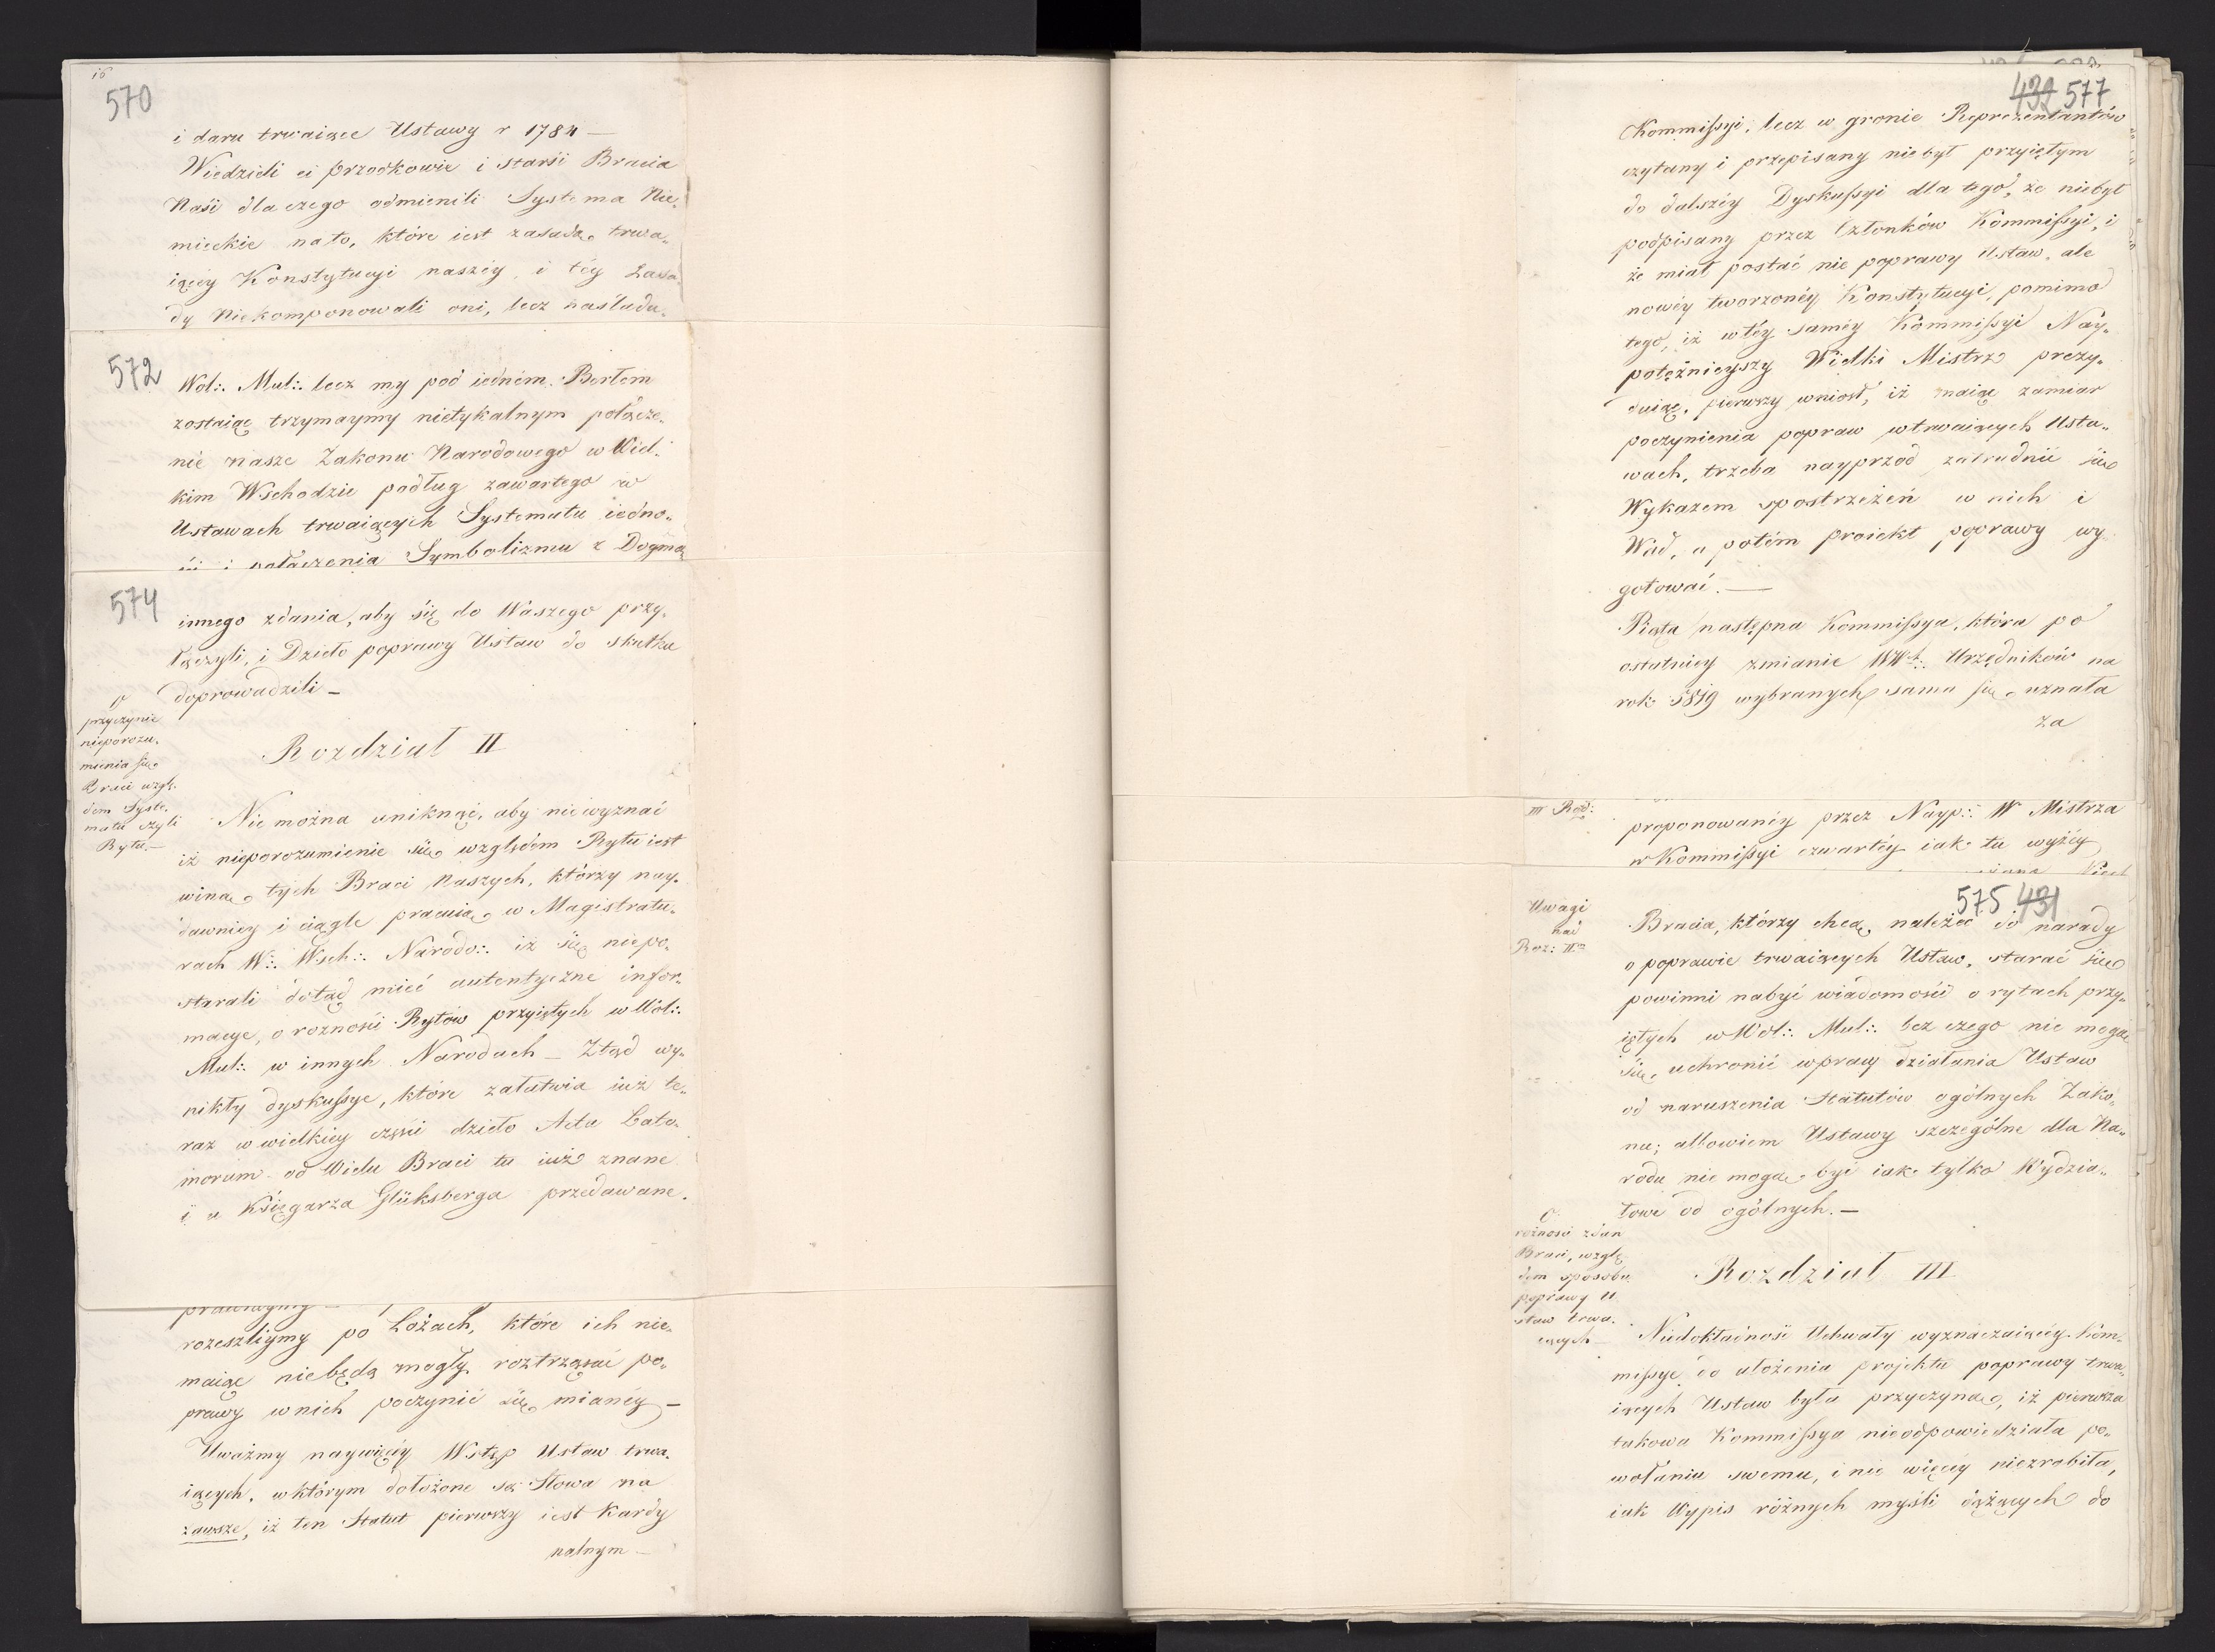 16
570
i daru trwaiące Ustawy r 1784 —
Wiedzieli ci przodkowie i starsi Bracia
Nasi dla czego odmienili Systema Nie„
mieckie na to, które iest zasadą trwa„
iącéy Konstytucyi naszéy, i téy Zasa„
dy Niekomponowali oni, lecz naśladu„
572
Wol∴ Mul∴ lecz my pod iedném Berłem
zostaiąc trzymaymy nietykalnym połącze„
nie nasze Zakonu Narodowego w Wiel„
kim Wschodzie podług zawartego w
Ustawach trwaiących Systematu iedno„
ści i połączenia Symbolizmu z Dogma„
574
innego zdania, aby się do Waszego przy„
łączyli, i Dzieło poprawy Ustaw do skutku
doprowadzili —
O
przyczynie
nieporozu„
mienia się
Braci wzglę„
dem Syste„
matu czyli
Rytu.—
Rozdział II
Nie można uniknąć, aby nie wyznać
iż nieporozumienie się względem Rytu iest
winą tych Braci Naszych, którzy nay„
dawniey i ciągle pracuią w Magistratu„
rach W∴ Wsch∴ Narodo∴ iż się niepo„
starali dotąd mieć autentyczne infor„
macye, o rożności Rytów przyiętych w Wol∴
Mul∴ w innych Narodach — Ztąd wy„
nikły dyskussye, które załatwia iuż te„
raz w wielkiey części dzieło Acta Lato„
morum od Wielu Braci tu iuż znane
i u Księgarza Glüksberga przedawane.
rozeszliymy po Lożach, które ich nie„
maiąc niebędą mogły roztrząsać po„
prawy w nich poczynić się mianéy —
Uważmy naywięcéy Wstęp Ustaw trwa„
iących, w którym dołożone są Słowa na
zawsze, iż ten Statut pierwszy iest Kardy
nalnym —
432 577
Kommissyi, lecz w gronie Reprezentantów
czytany i przepisany niebył przyiętym
do dalszéy Dyskussyi dla tego, że niebył
podpisany przez Członków Kommissyi, i
że miał postać nie poprawy Ustaw, ale
nowéy tworzonéy Konstytucyi, pomimo
tego, iż w téy saméy Kommissyi Nay„
potężnieyszy Wielki Mistrz prezy„
duiąc, pierwszy wniosł, iż maiąc zamiar
poczynienia popraw w trwaiących Usta„
wach, trzeba nayprzod zatrudnić się
Wykazem spostrzeżeń w nich i
Wad, a potém proiekt poprawy wy„
gotować.—
Piąta następna Kommissya, która po
ostatniey zmianie WW∴ Urzędników na
rok 5819 wybranych sama się uznała
za
III Roz:
proponowanéy przez Nayp∴ W Mistrza
w Kommissyi czwartéy iak tu wyżéy
575 431
Uwagi
nad
Roz: IIm
Bracia, którzy chcą należeć do narady
o poprawie trwaiących Ustaw, starać się
powinni nabyć wiadomości o rytach przy„
iętych w Wol∴ Mul∴ bez czego nie mogą
się uchronić w pracy działania Ustaw
od naruszenia Statutów ogólnych Zako„
nu; albowiem Ustawy szczególne dla Na„
rodu nie mogą być iak tylko Wydzia„
łowe od ogólnych.—
O
rożności zdań
Braci, wzglę„
dem sposobu
poprawy U„
staw trwa„
iących
Rozdział III
Niedokładność Uchwały wyznaczaiącéy Kom„
missyę do ułożenia projektu poprawy trwa„
iących Ustaw była przyczyną, iż pierwsza
takowa Kommissya nieodpowiedziała po„
wołaniu swemu, i nic więcéy niezrobiła,
iak Wypis różnych myśli dążących do